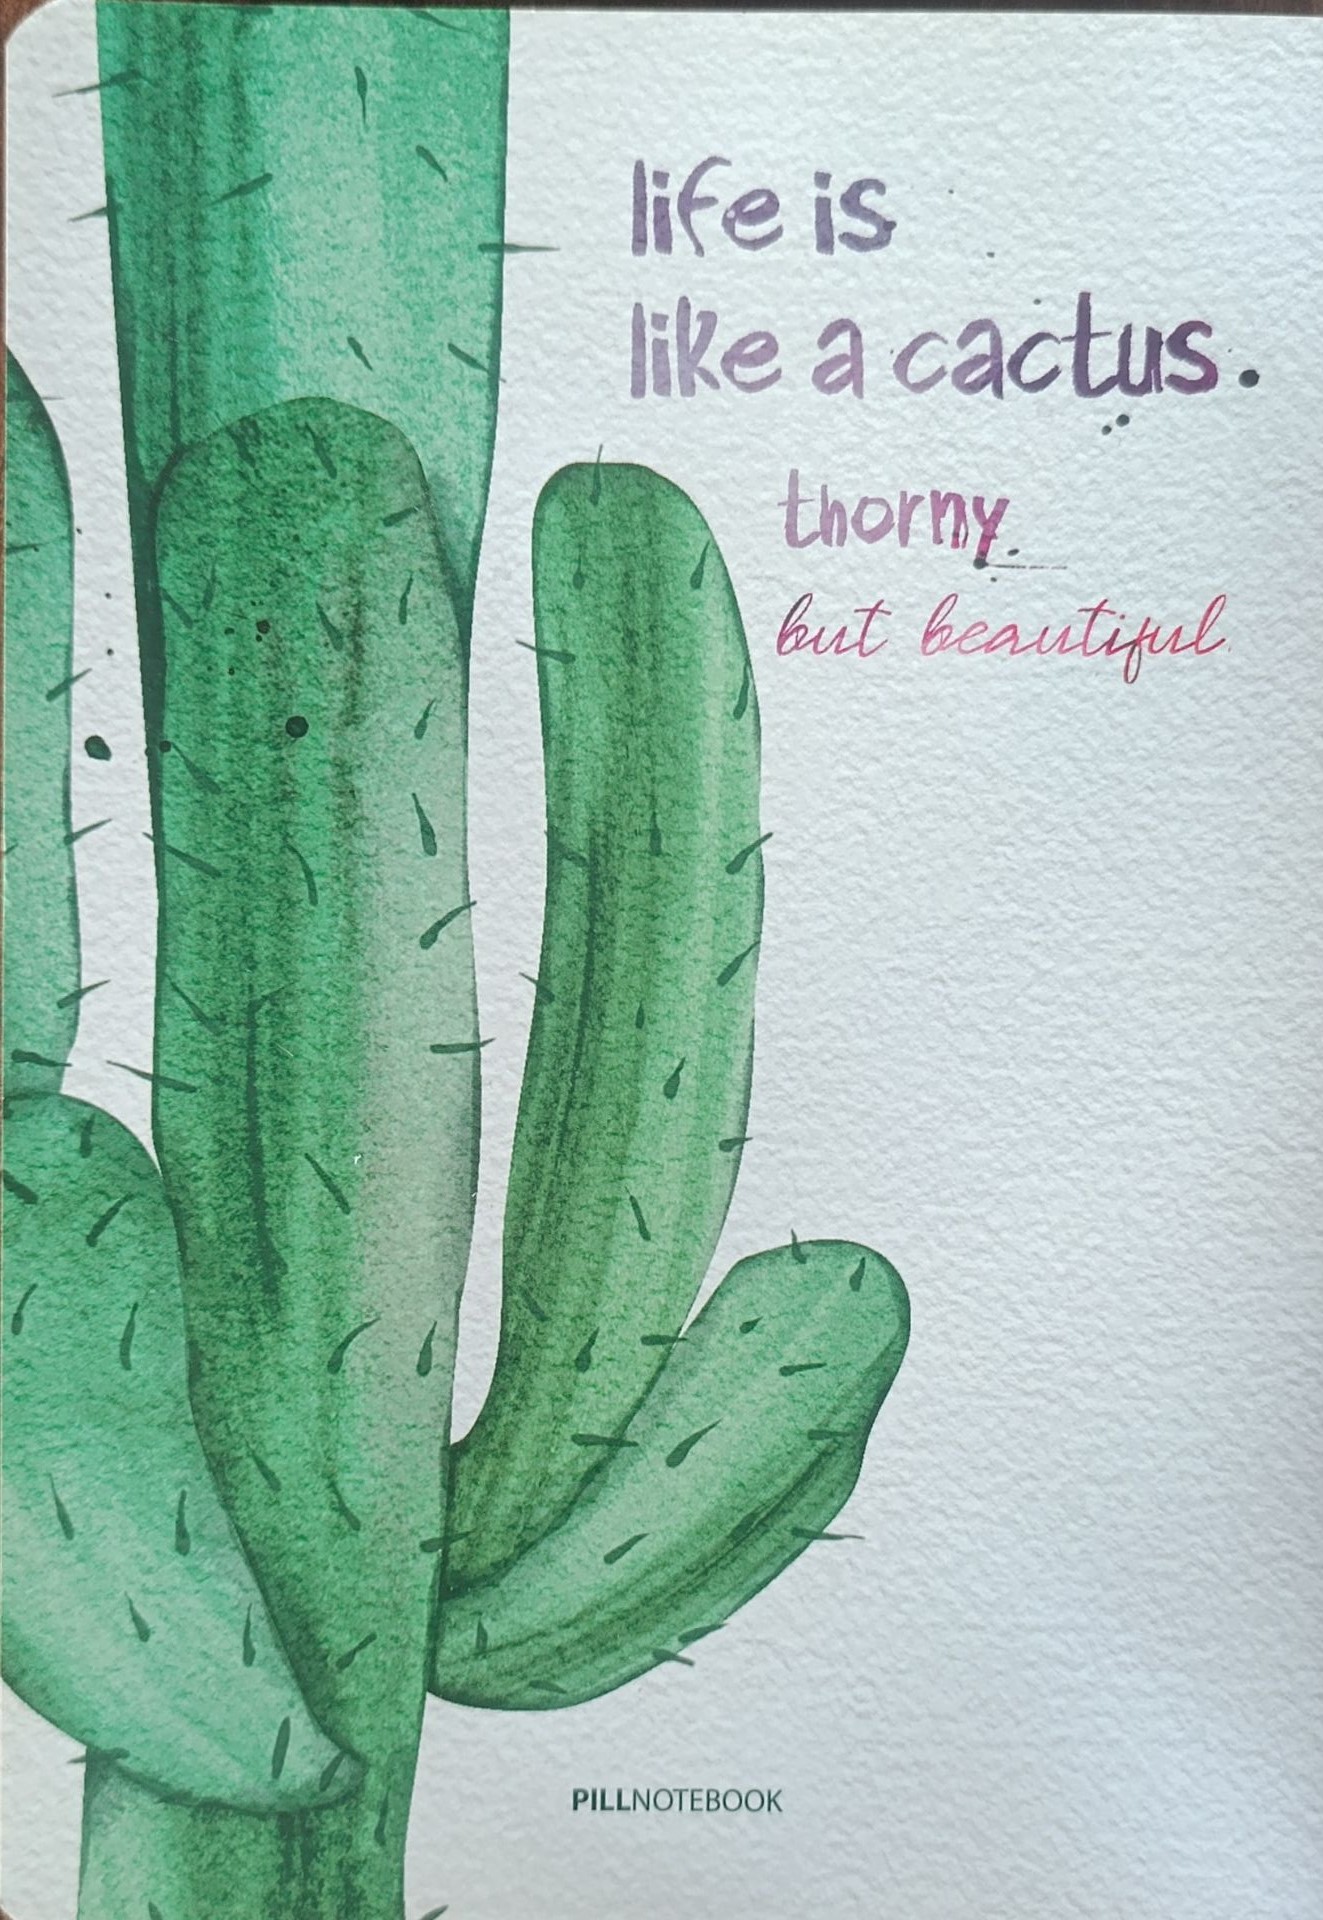 life is
like a cactus.
thorny
but beautiful
PILLNOTEBOOK